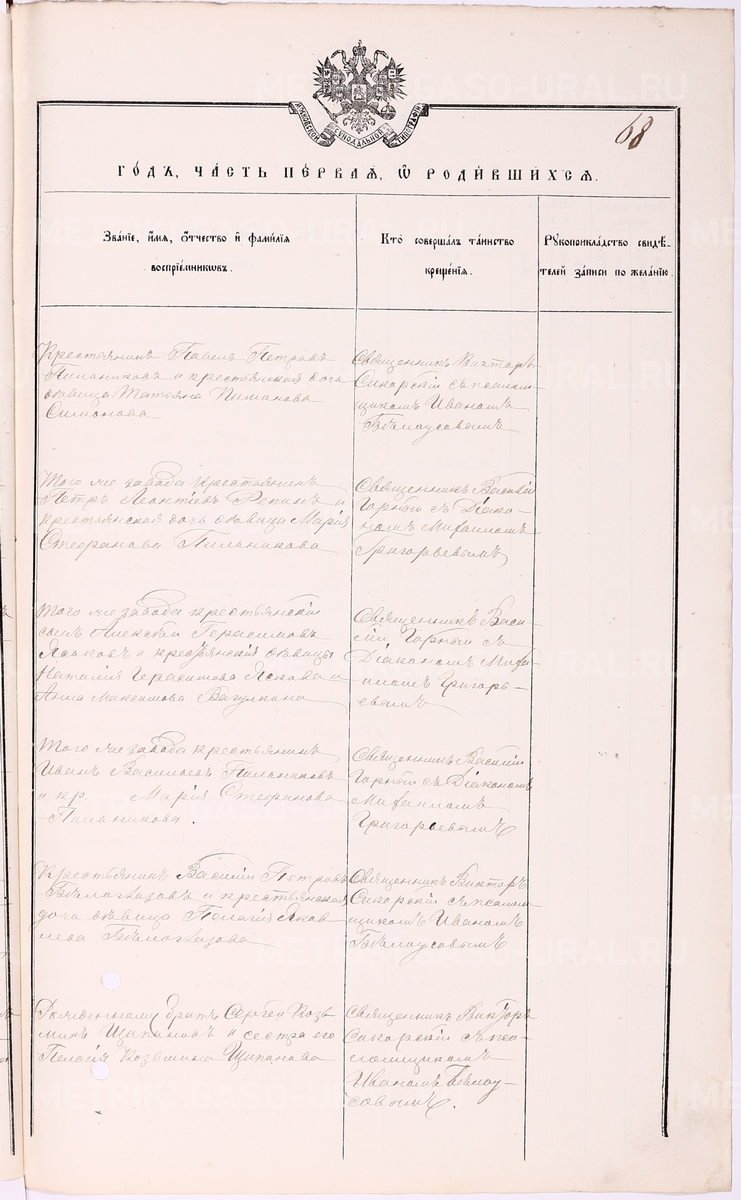 68
МОСКОВСКОЙ СѴНОДАЛЬНОЙ ТИПОГРАФІИ
ГОДЪ, ЧАСТЬ ПЕРВАЯ, Ѡ РОДИВШИХСЯ.
Званіе, имя, отчество и фамилія
воспріемниковъ.
Кто совершалъ таинство
крещенія.
Рукоприкладство свидѣ-
телей записи по желанію.
Крестьянинъ Павелъ Петровъ
Пильниковъ и крестьянская дочь
дѣвица Татьяна Пимонова
Симонова
Священникъ Викторъ
Сикорскій съ псалом-
щикомъ Иваномъ
Бѣлоусовымъ
Того же завода крестьянинъ
Петръ Леонтіевъ Репинъ и
крестьянская дочь дѣвица Марія
Стефанова Пильникова
Священникъ Василій
Горный съ Діако-
номъ Михаиломъ
Григорьевымъ
Того же завода крестьянскій
сынъ Алексѣй Герасимовъ
Яськовъ и крестьянскія дѣвицы
Наталія Герасимова Яскова и
Анна Максимова Вагулкина
Священникъ Васи-
лій Горный съ
Діакономъ Михаи-
ломъ Григорь-
евымъ
Того же завода крестьянинъ
Иванъ Васильевъ Пильниковъ
и кр. Марія Стефанова
Пильникова.
Священникъ Василій
Горный съ Діакономъ
Михаиломъ
Григорьевымъ
Крестьянинъ Василій Петровъ
Бѣлоглазовъ и крестьянская
дочь дѣвица Пелагія Яков-
лева Бѣлоглазова
Священникъ Викторъ
Сикорскій съ псалом-
щикомъ Иваномъ
Бѣлоусовымъ
Рожденному братъ Сергей Козь-
минъ Щипановъ и сестра его
Пелагія Козьмина Щипанова
Священникъ Викторъ
Сикорскій съ пса-
ломщикомъ
Иваномъ Бѣлоу-
совымъ.